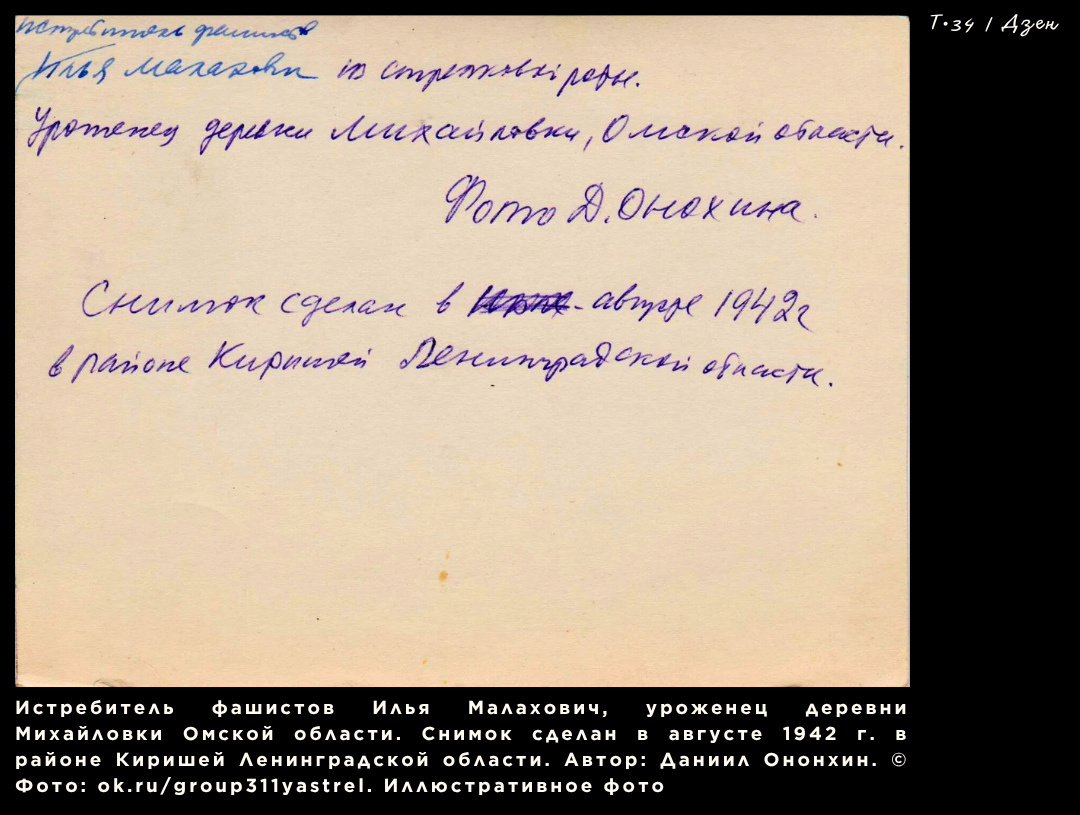 Т-34 | Дзен
истребитель фашистов
Илья Малахович из стрелковой роты.
Уроженец деревни Михайловки, Омской области.
Фото Д. Онохина.
Снимок сделан в августе 1942 г
в районе Киришей Ленинградской области.
Истребитель фашистов Илья Малахович, уроженец деревни
Михайловки Омской области. Снимок сделан в августе 1942 г. в
районе Киришей Ленинградской области. Автор: Даниил Ононхин. ©
Фото: ok.ru/group311yastrel. Иллюстративное фото